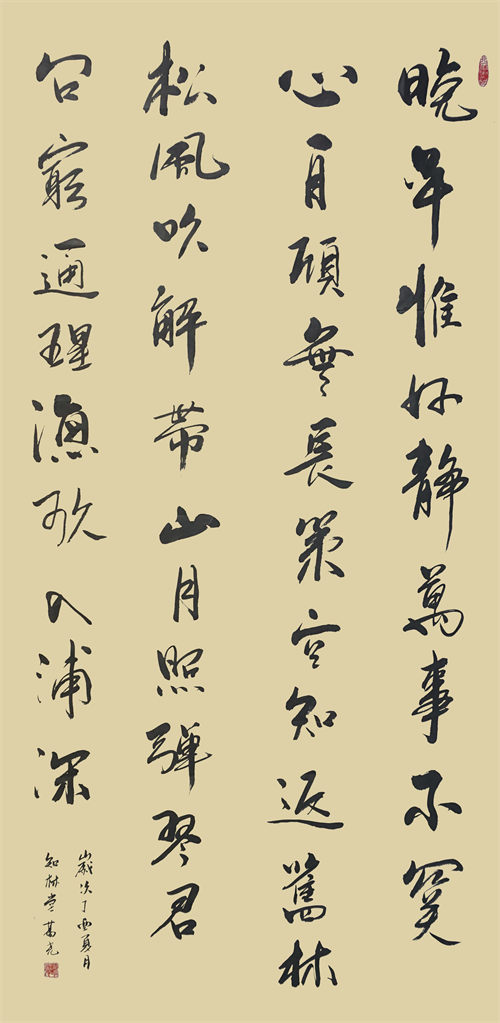 晚年惟好靜萬事不関
心自顧無長策空知返舊林
松風吹解帶山月照彈琴君
問窮通理漁歌入浦深
歲次丁酉夏月
知林堂